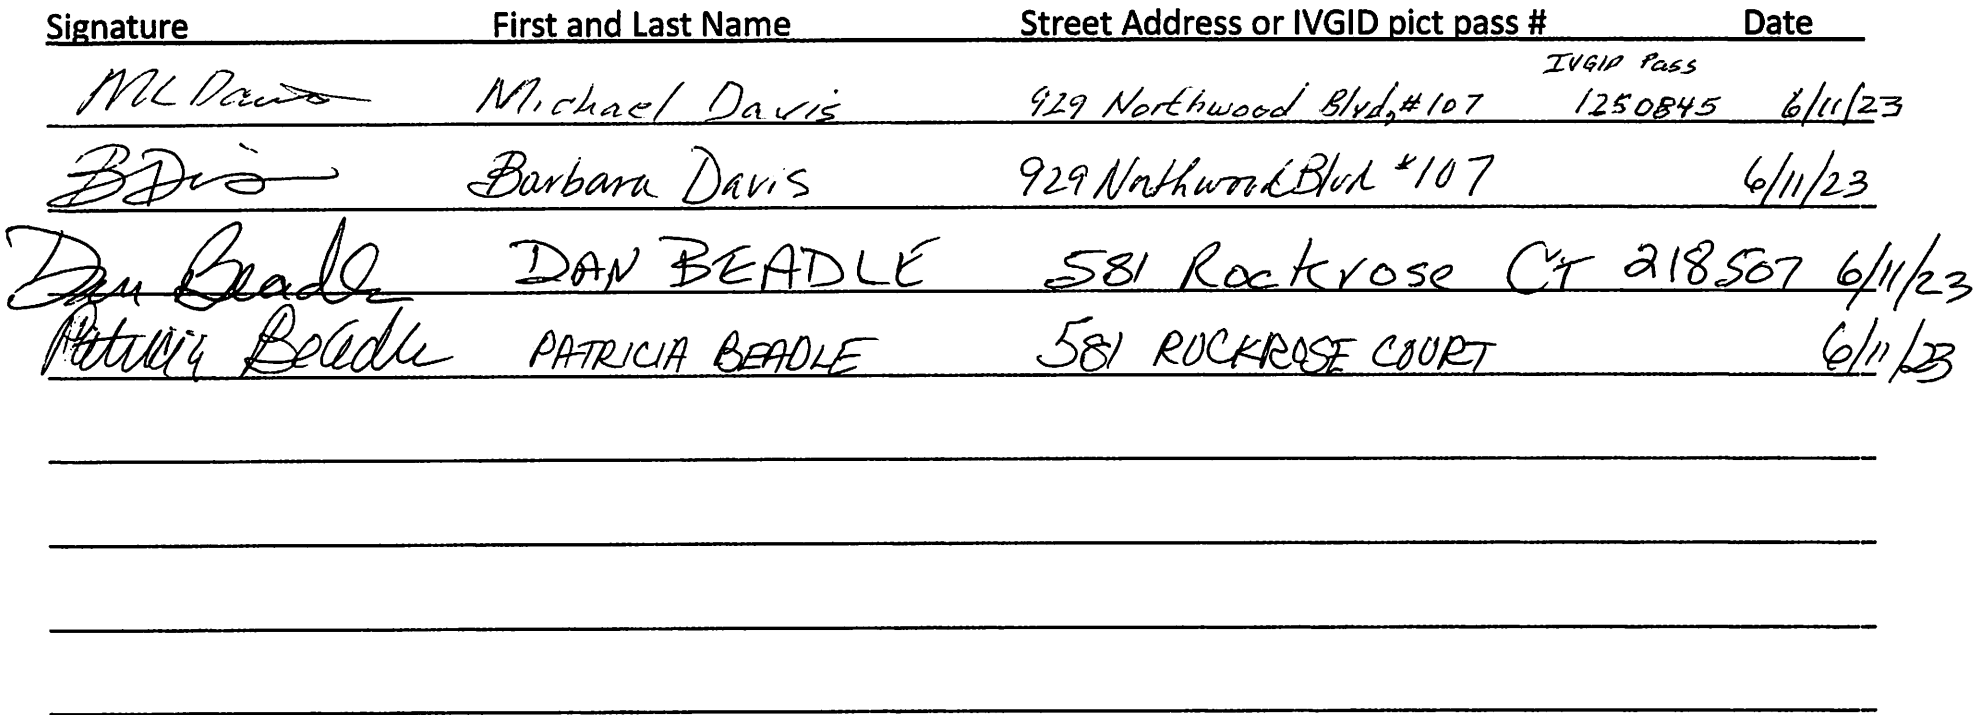 Signature First and Last Name Street Address or IVGID pict pass # Date
IVGID Pass
ML Davis Michael Davis 929 Northwood Blvd, #107 1250845 6/11/23
B Davis Barbara Davis 929 Northwood Blvd #107 6/11/23
Dan Beadle DAN BEADLE 581 Rockrose CT 218507 6/11/23
Patricia Beadle PATRICIA BEADLE 581 ROCKROSE COURT 6/11/23